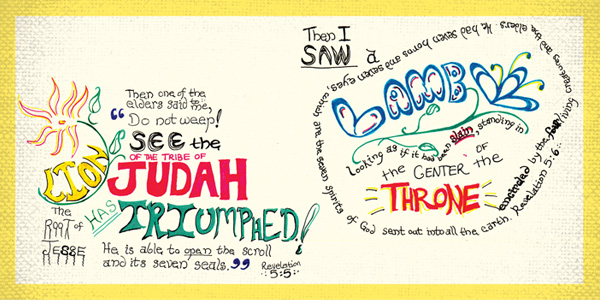 Then one of the
elders said to me,
"Do not weep!
SEE the
LION
OF THE TRIBE OF
JUDAH
The
ROOT of
JESSE
HAS
TRIUMPHED!
He is able to open the scroll
and its seven seals."
Revelation
5:5
Then I
SAW a
LAMB
Looking as if it had been slain, standing in
the CENTER of the
THRONE
encircled by the four living
creatures and the elders. He had seven horns and seven eyes,
which are the seven spirits of God sent out into all the earth. Revelation 5:6